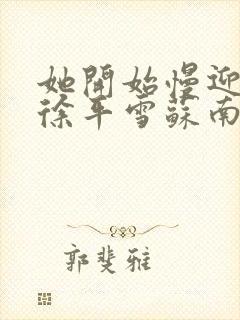 她開始慢迎
徐平雪蘇南
郭斐雅